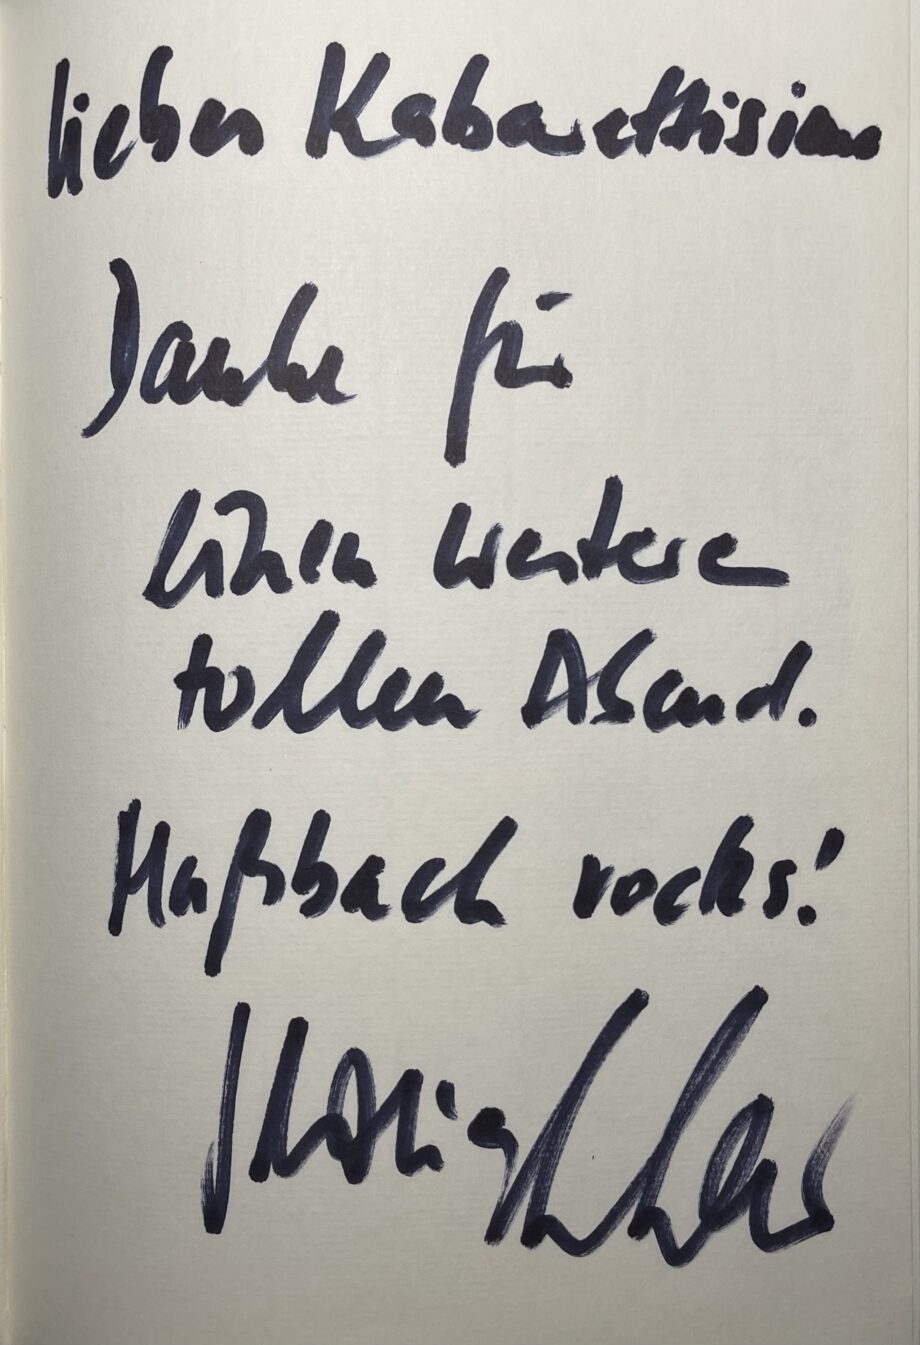 lieber Kabarettisimo
Danke für
einen weiteren
tollen Abend.
Maßbach rocks!